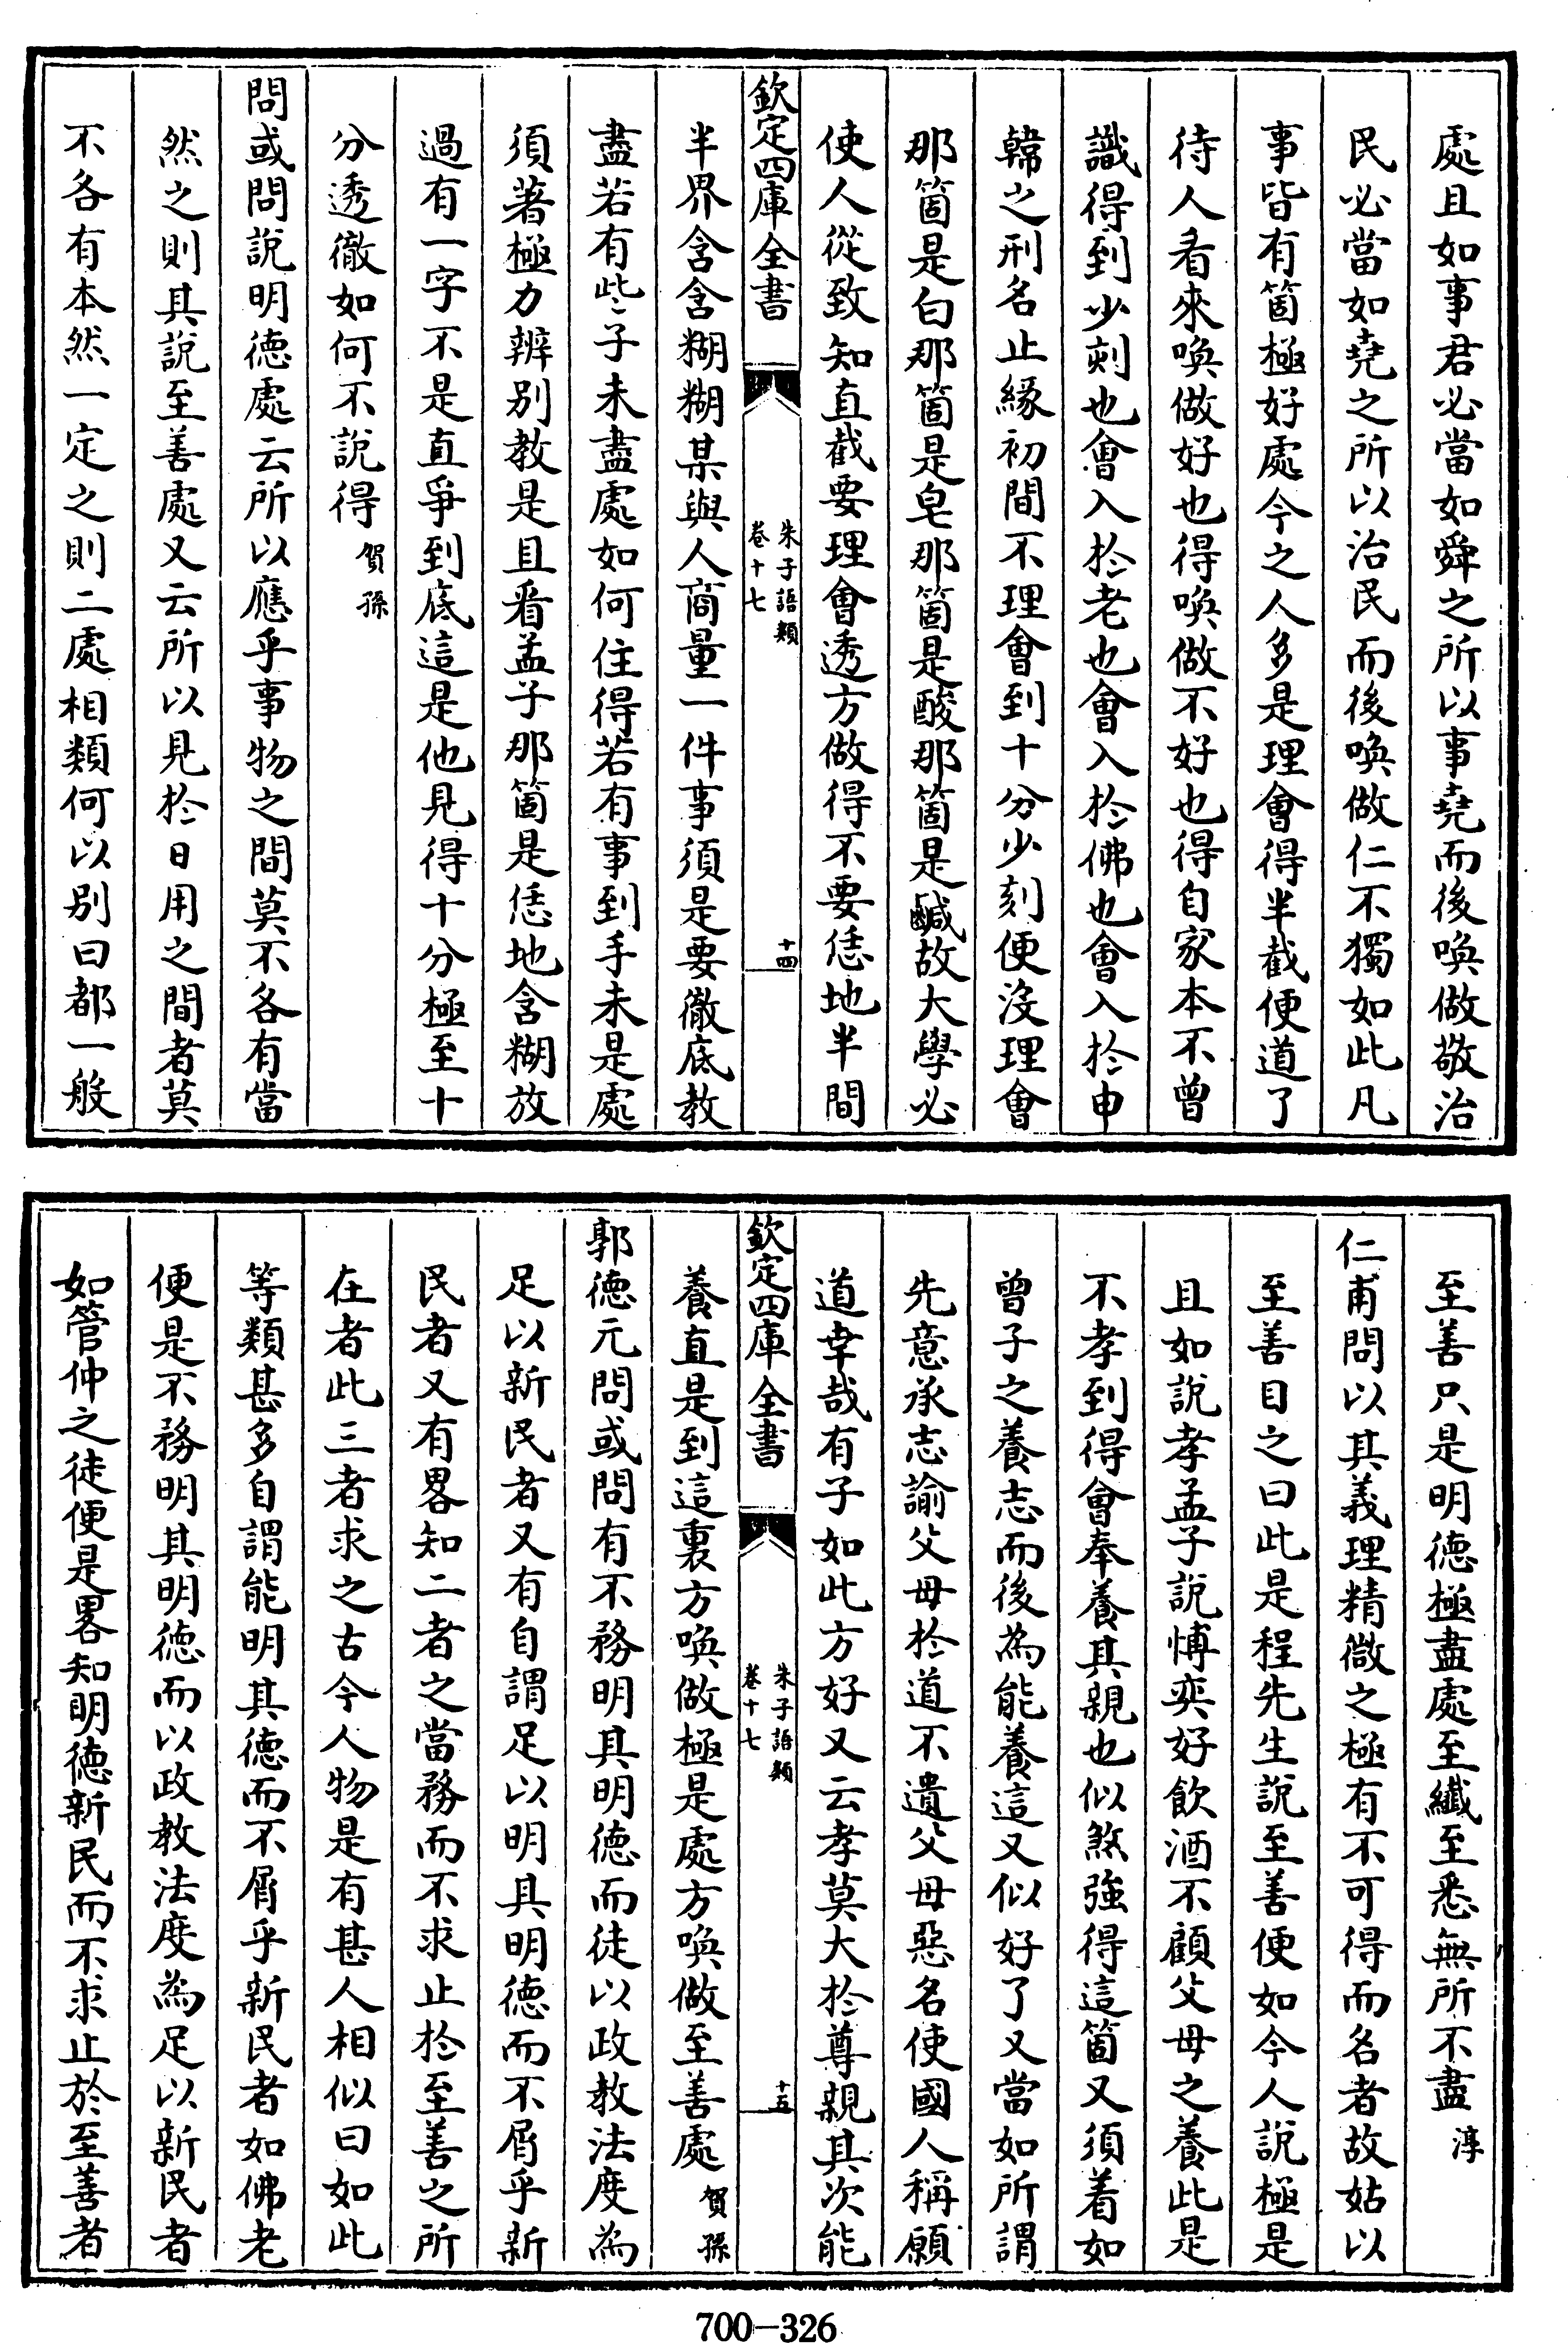 處且如事君必當如舜之所以事堯而後喚做敬治
民必當如堯之所以治民而後喚做仁不獨如此凡
事皆有箇極好處今之人多是理會得半截便道了
待人看來喚做好也得喚做不好也得自家本不曾
識得到少刻也會入於老也會入於佛也會入於申
韓之刑名止緣初間不理會到十分少刻便沒理會
那箇是白那箇是皂那箇是酸那箇是鹹故大學必
使人從致知直截要理會透方做得不要恁地半間
欽定四庫全書
朱子語類
卷十七
十四
半界含含糊糊某與人商量一件事須是要徹底教
盡若有些子未盡處如何住得若有事到手未是處
須著極力辨別教是且看孟子那箇是恁地含糊放
過有一字不是直爭到底這是他見得十分極至十
分透徹如何不說得賀孫
問或問說明德處云所以應乎事物之間莫不各有當
然之則其說至善處又云所以見於日用之間者莫
不各有本然一定之則二處相類何以別曰都一般
至善只是明德極盡處至纖至悉無所不盡淳
仁甫問以其義理精微之極有不可得而名者故姑以
至善目之曰此是程先生說至善便如今人說極是
且如說孝孟子說博奕好飲酒不顧父母之養此是
不孝到得會奉養其親也似煞強得這箇又須着如
曾子之養志而後為能養這又似好了又當如所謂
先意承志諭父母於道不遺父母惡名使國人稱願
道幸哉有子如此方好又云孝莫大於尊親其次能
欽定四庫全書
朱子語類
卷十七
十五
養直是到這裏方喚做極是處方喚做至善處賀孫
郭德元問或問有不務明其明德而徒以政教法度為
足以新民者又有自謂足以明其明德而不屑乎新
民者又有畧知二者之當務而不求止於至善之所
在者此三者求之古今人物是有甚人相似曰如此
等類甚多自謂能明其德而不屑乎新民者如佛老
便是不務明其明德而以政教法度為足以新民者
如管仲之徒便是畧知明德新民而不求止於至善者
700-326